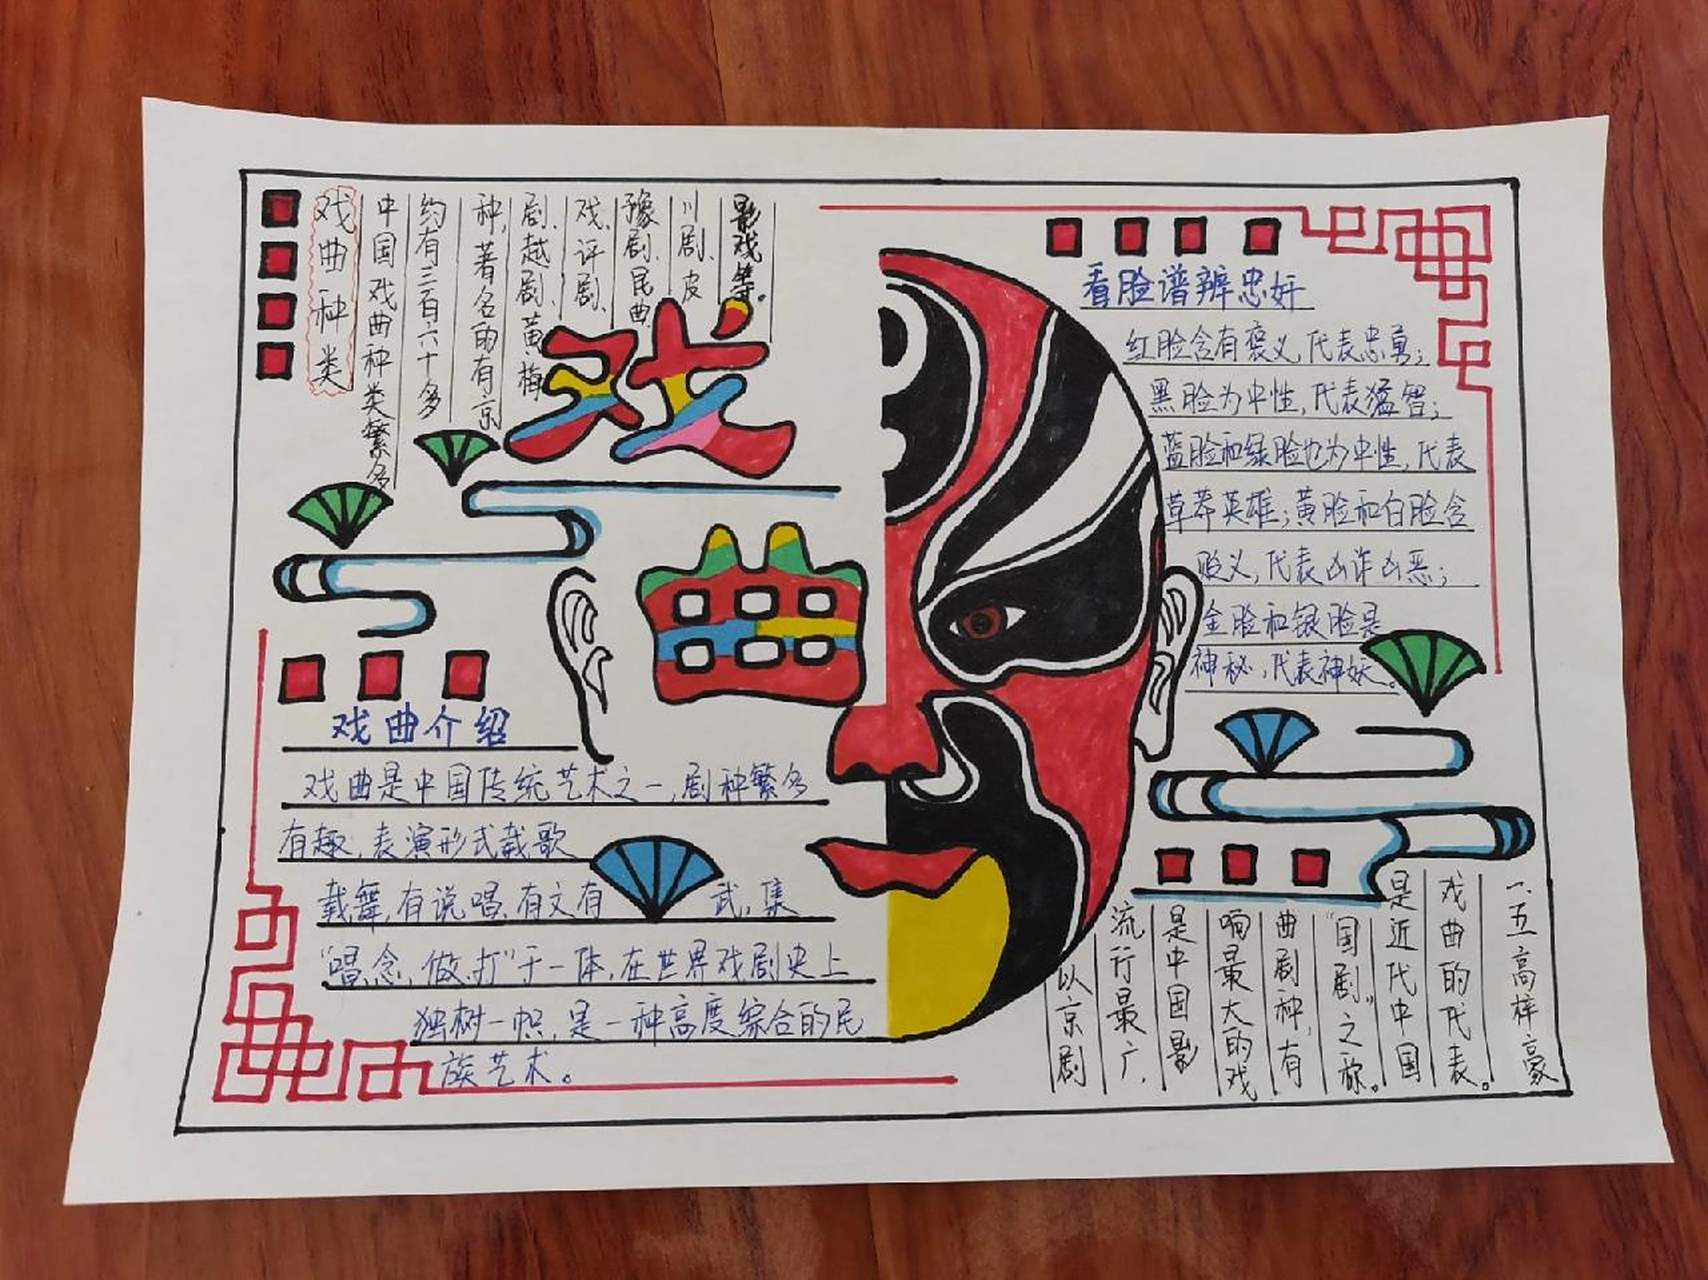 戏曲种类
中国戏曲种类繁多
约有三百六十多
种,著名的有:京
剧、越剧、黄梅
戏、评剧、
豫剧、昆曲、
川剧、皮
影戏等。
戏
曲
看脸谱辨忠奸
红脸含有褒义,代表忠勇;
黑脸为中性,代表猛智;
蓝脸和绿脸也为中性,代表
草莽英雄;黄脸和白脸含
贬义,代表凶诈凶恶;
金脸和银脸是
神秘,代表神妖。
戏曲介绍
戏曲是中国传统艺术之一,剧种繁多
有趣,表演形式载歌
载舞,有说唱,有文有武,集
“唱、念、做、打”于一体,在世界戏剧史上
独树一帜,是一种高度综合的民
族艺术。
以京剧
流行最广,
是中国影
响最大的戏
曲剧种,有
“国剧”之称。
是近代中国
戏曲的代表。
一.五高梓豪